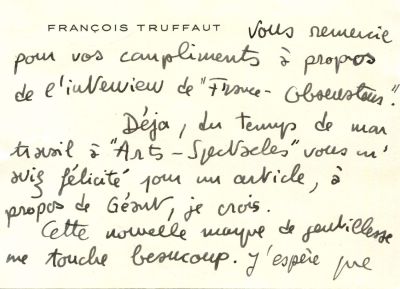 FRANÇOIS TRUFFAUT vous remercie
pour vos compliments à propos
de l'interview de "France-Observateur".
Déja, du temps de mon
travail à "Arts-Spectacles" vous m'
aviez félicité pour un article, à
propos de Géant, je crois.
Cette nouvelle marque de gentillesse
me touche beaucoup. J'espère que